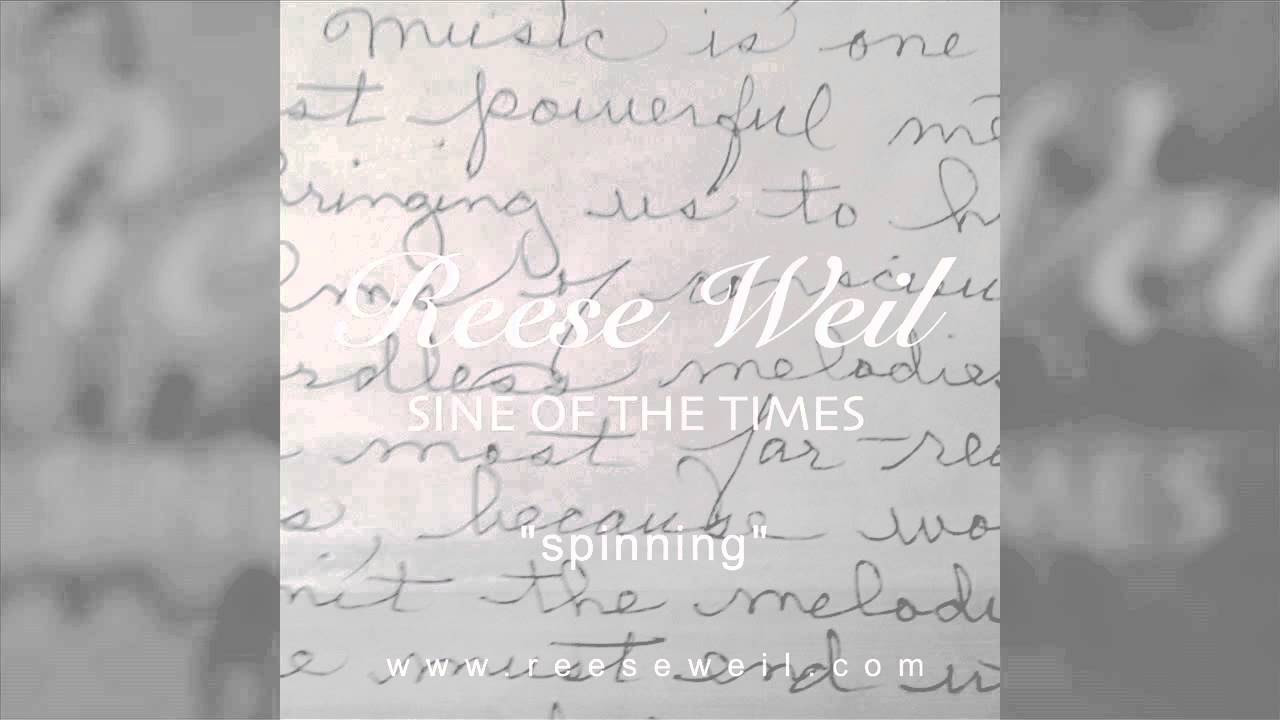 Music is one
st powerful me
bringing us to h
lms of consciou
Reese Weil
rdless melodies
SINE OF THE TIMES
most far-rea
s, because wo
"spinning"
mit the melodi
e must end w
www.reeseweil.com